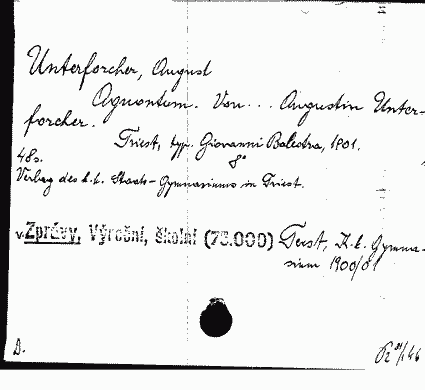 Unterforcher, August
Aguontum. Von ... Augustin Unter-
forcher.
Triest, typ. Giovanni Balestra, 1901.
48s. 8°
Verlag des k.k. Staats-Gymnasiums in Triest.
v. Zprávy, Výroční, školní (75.000) Terst, K.k. Gymna-
sium 1900/01
D.